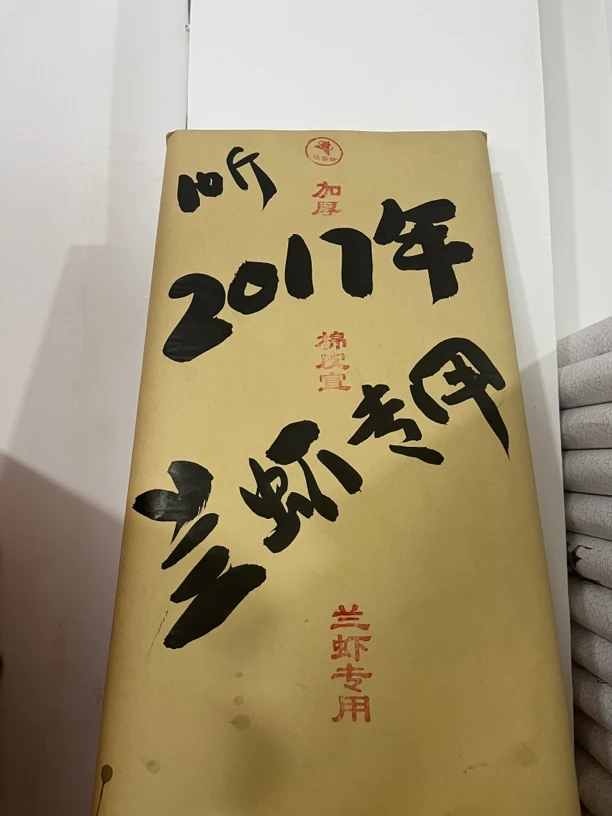 10斤
加厚
2017年
棉皮宣
兰虾专用
兰虾专用